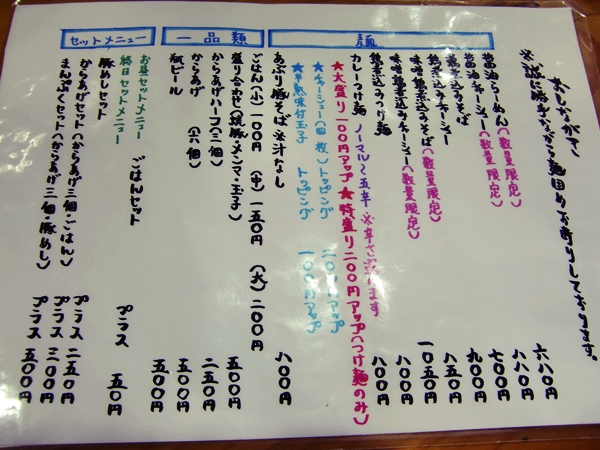 おしながき
※誠に勝手ながら麺固めお断りしております。
麺
醤油らーめん(数量限定) 六八〇円
醤油チャーシュー(数量限定) 八八〇円
鶏煮込みそば 七〇〇円
鶏煮込みチャーシュー 九〇〇円
味噌鶏煮込みそば(数量限定) 八五〇円
味噌鶏煮込みチャーシュー(数量限定) 一〇五〇円
鶏煮込みつけ麺 八〇〇円
カレーつけ麺 ノーマル~五辛 ※辛さ選べます 八〇〇円
★大盛り一〇〇円アップ ★特盛り二〇〇円アップ(つけ麺のみ)
★チャーシュー(四枚)トッピング 二〇〇円アップ
★半熟味付玉子 トッピング 一〇〇円アップ
あぶり豚そば ※汁なし 八〇〇円
一品類
ごはん(小)一〇〇円 (中)一五〇円 (大)二〇〇円
盛り合わせ(炙豚・メンマ・玉子) 五〇〇円
からあげハーフ(三個) 二五〇円
からあげ (六個) 五〇〇円
瓶ビール 五〇〇円
セットメニュー
お昼セットメニュー ごはんセット プラス 五〇円
終日セットメニュー
豚めしセット プラス 二五〇円
からあげセット(からあげ三個・ごはん) プラス 三〇〇円
まんぷくセット(からあげ三個・豚めし) プラス 五〇〇円